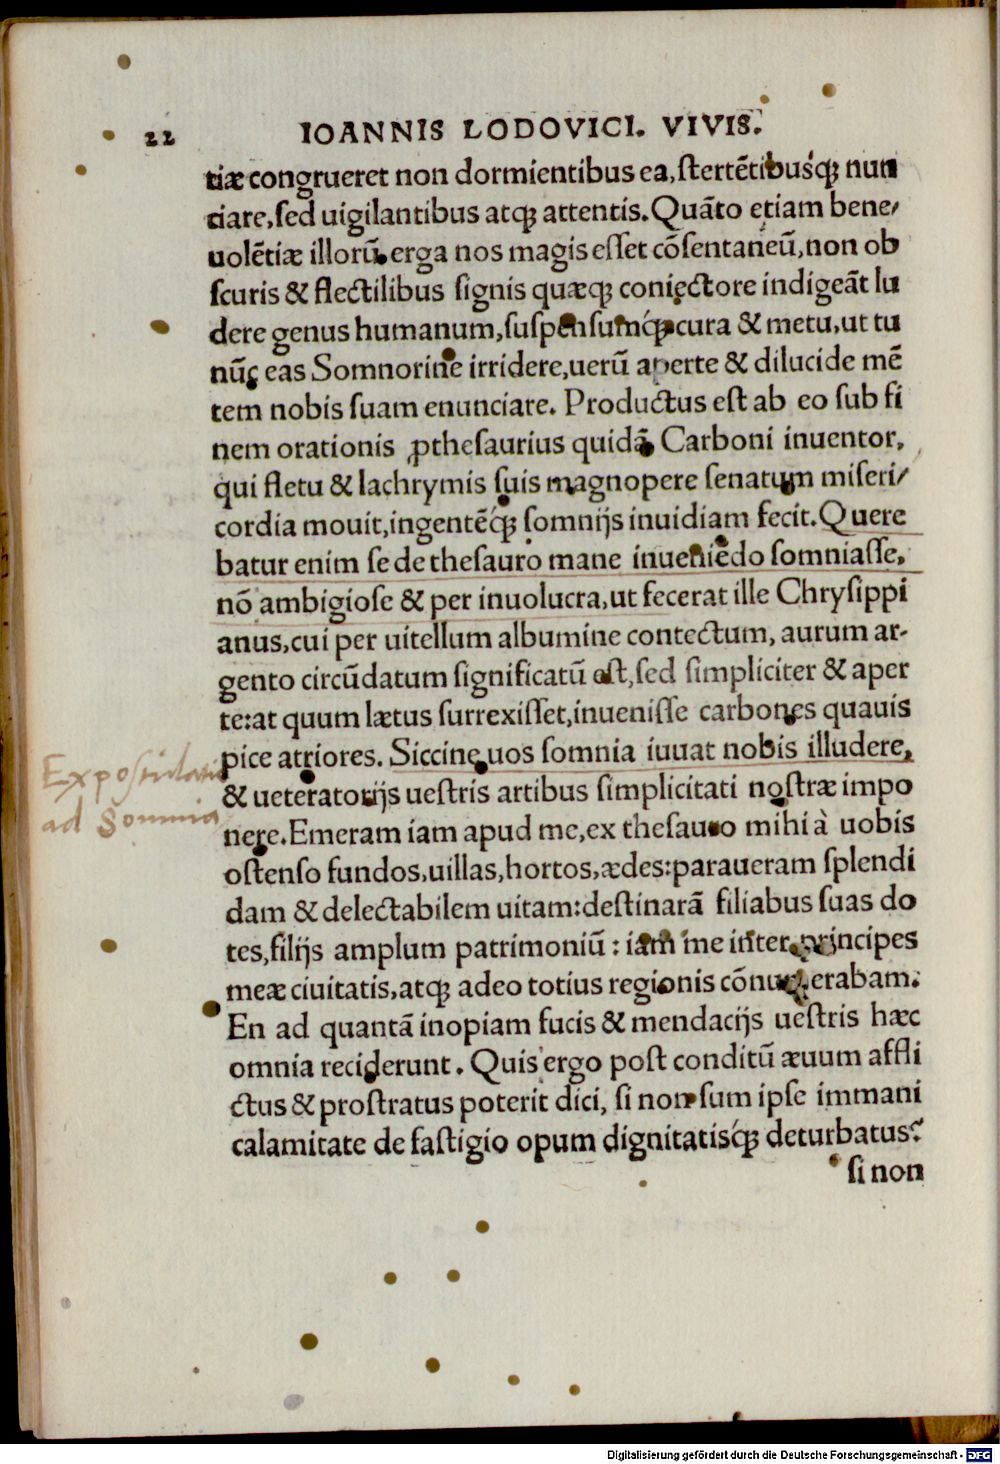 22 IOANNIS LODOVICI. VIVIS.
tiæ congrueret non dormientibus ea, stertẽtibusq́ꝫ nun
ciare, sed uigilantibus atqꝫ attentis. Quãto etiam bene/
uolẽtiæ illorũ erga nos magis esset cõsentaneũ, non ob
scuris & flectilibus signis quæqꝫ coniectore indigeãt lu
dere genus humanum, suspensumq́ꝫ cura & metu, ut tu
nũc eas Somnorine irridere, uerũ aperte & dilucide mẽ
tem nobis suam enunciare. Productus est ab eo sub fi
nem orationis ꝓthesaurius quidã Carboni inuentor,
qui fletu & lachrymis suis magnopere senatum miseri/
cordia mouit, ingentẽq́ꝫ somnijs inuidiam fecit. Quere
batur enim se de thesauro mane inueniẽdo somniasse,
nõ ambigiose & per inuolucra, ut fecerat ille Chrysippi
anus, cui per uitellum albumine contectum, aurum ar-
gento circũdatum significatũ est, sed simpliciter & aper
te: at quum lætus surrexisset, inuenisse carbones quauis
pice atriores. Siccine uos somnia iuuat nobis illudere,
& ueteratorijs uestris artibus simplicitati nostræ impo
nere. Emeram iam apud me, ex thesauro mihi à uobis
ostenso fundos, uillas, hortos, ædes: paraueram splendi
dam & delectabilem uitam: destinarã filiabus suas do
tes, filijs amplum patrimoniũ: iam me inter principes
meæ ciuitatis, atqꝫ adeo totius regionis cõnumerabam.
En ad quantã inopiam fucis & mendacijs uestris hæc
omnia reciderunt. Quis ergo post conditũ æuum affli
ctus & prostratus poterit dici, si non sum ipse immani
calamitate de fastigio opum dignitatisq́ꝫ deturbatus?
si non
Expostulatio
ad Somnia
Digitalisierung gefördert durch die Deutsche Forschungsgemeinschaft - DFG